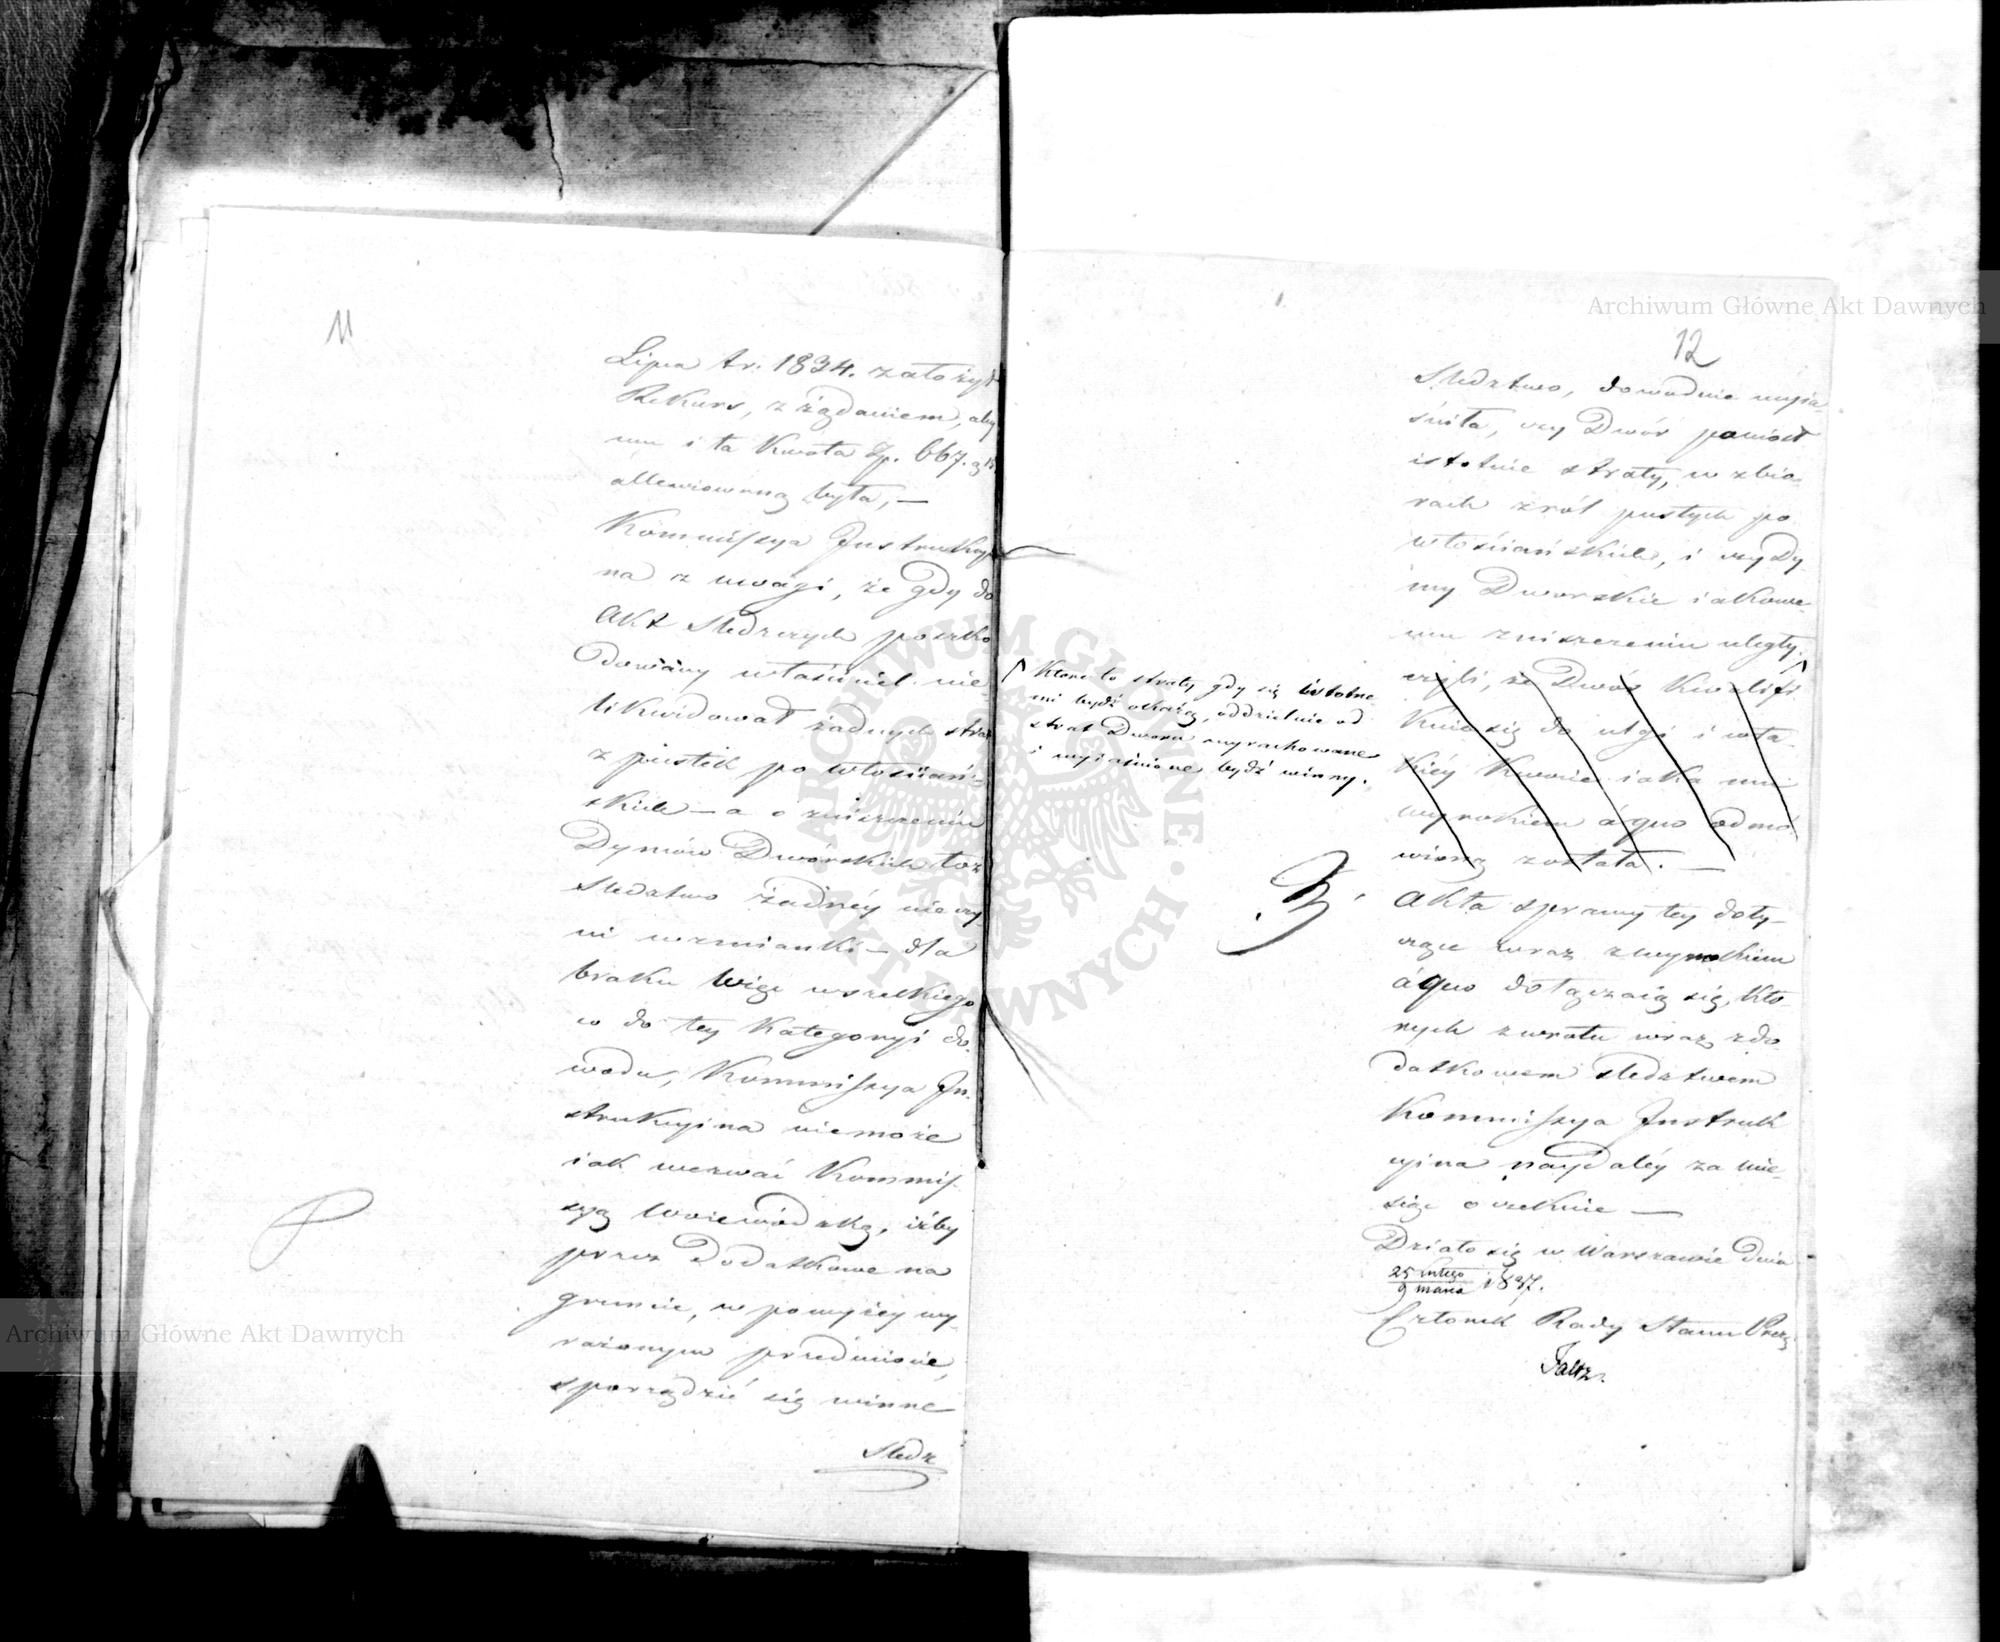 11
Lipca tr. 1834. założył
Rekurs, z żądaniem, aby
mu i ta Kwota Zp. 667. g 15.
allewiowaną była, —
Kommissya Instrukcyi
na z uwagi, że gdy do
Akt Sledczych poszko
dowany właściciel nie
likwidował żadnych strat
z pustek po włościań
skich — a o zniszczeniu
Dymów Dworskich toż
Sledztwo żadnéy nie czy
ni wzmianki — dla
braku więc wszelkiego
co do tey Kategoryi do
wodu, Kommissya In
strukcyina niemoże
iak wezwać Kommis
syą Woiewódzką, iżby
przez Dodatkowe na
gruncie, w powyżey wy
rażonym przedmiocie,
sporządzić się winne
Sledz
12
Sledztwo, dowodnie wyia
śniła, czy Dwór poniósł
istotnie straty, w zbio
rach z ról pustych po
włościańskich, i czy Dy
my Dworskie iakowe
mu zniszczeniu uległy.
czyli, że Dwór Kwalifi
kuie się do ulgi i w ta
kiéy Kwocie iaka mu
wyrokiem á quo odmó
wioną została. —
Które to straty gdy się istotne
mi bydź okażą, oddzielnie od
strat Dworu wyrachowane
i wyiaśnione bydź winny.
Akta sprawy tey doty
czące wraz z wyrokiem
á quo dołączaią się, któ
rych zwrotu wraz z do
datkowem sledztwem
Kommissya Instruk
cyina naydaléy za mie
siąc oczekuie —
Działo się w Warszawie dnia
25 Lutego
9 Marca 1837.
Członek Rady Stanu Prez
Faltz.
Archiwum Główne Akt Dawnych
Archiwum Główne Akt Dawnych
ARCHIWUM GŁÓWNE · AKT DAWNYCH ·